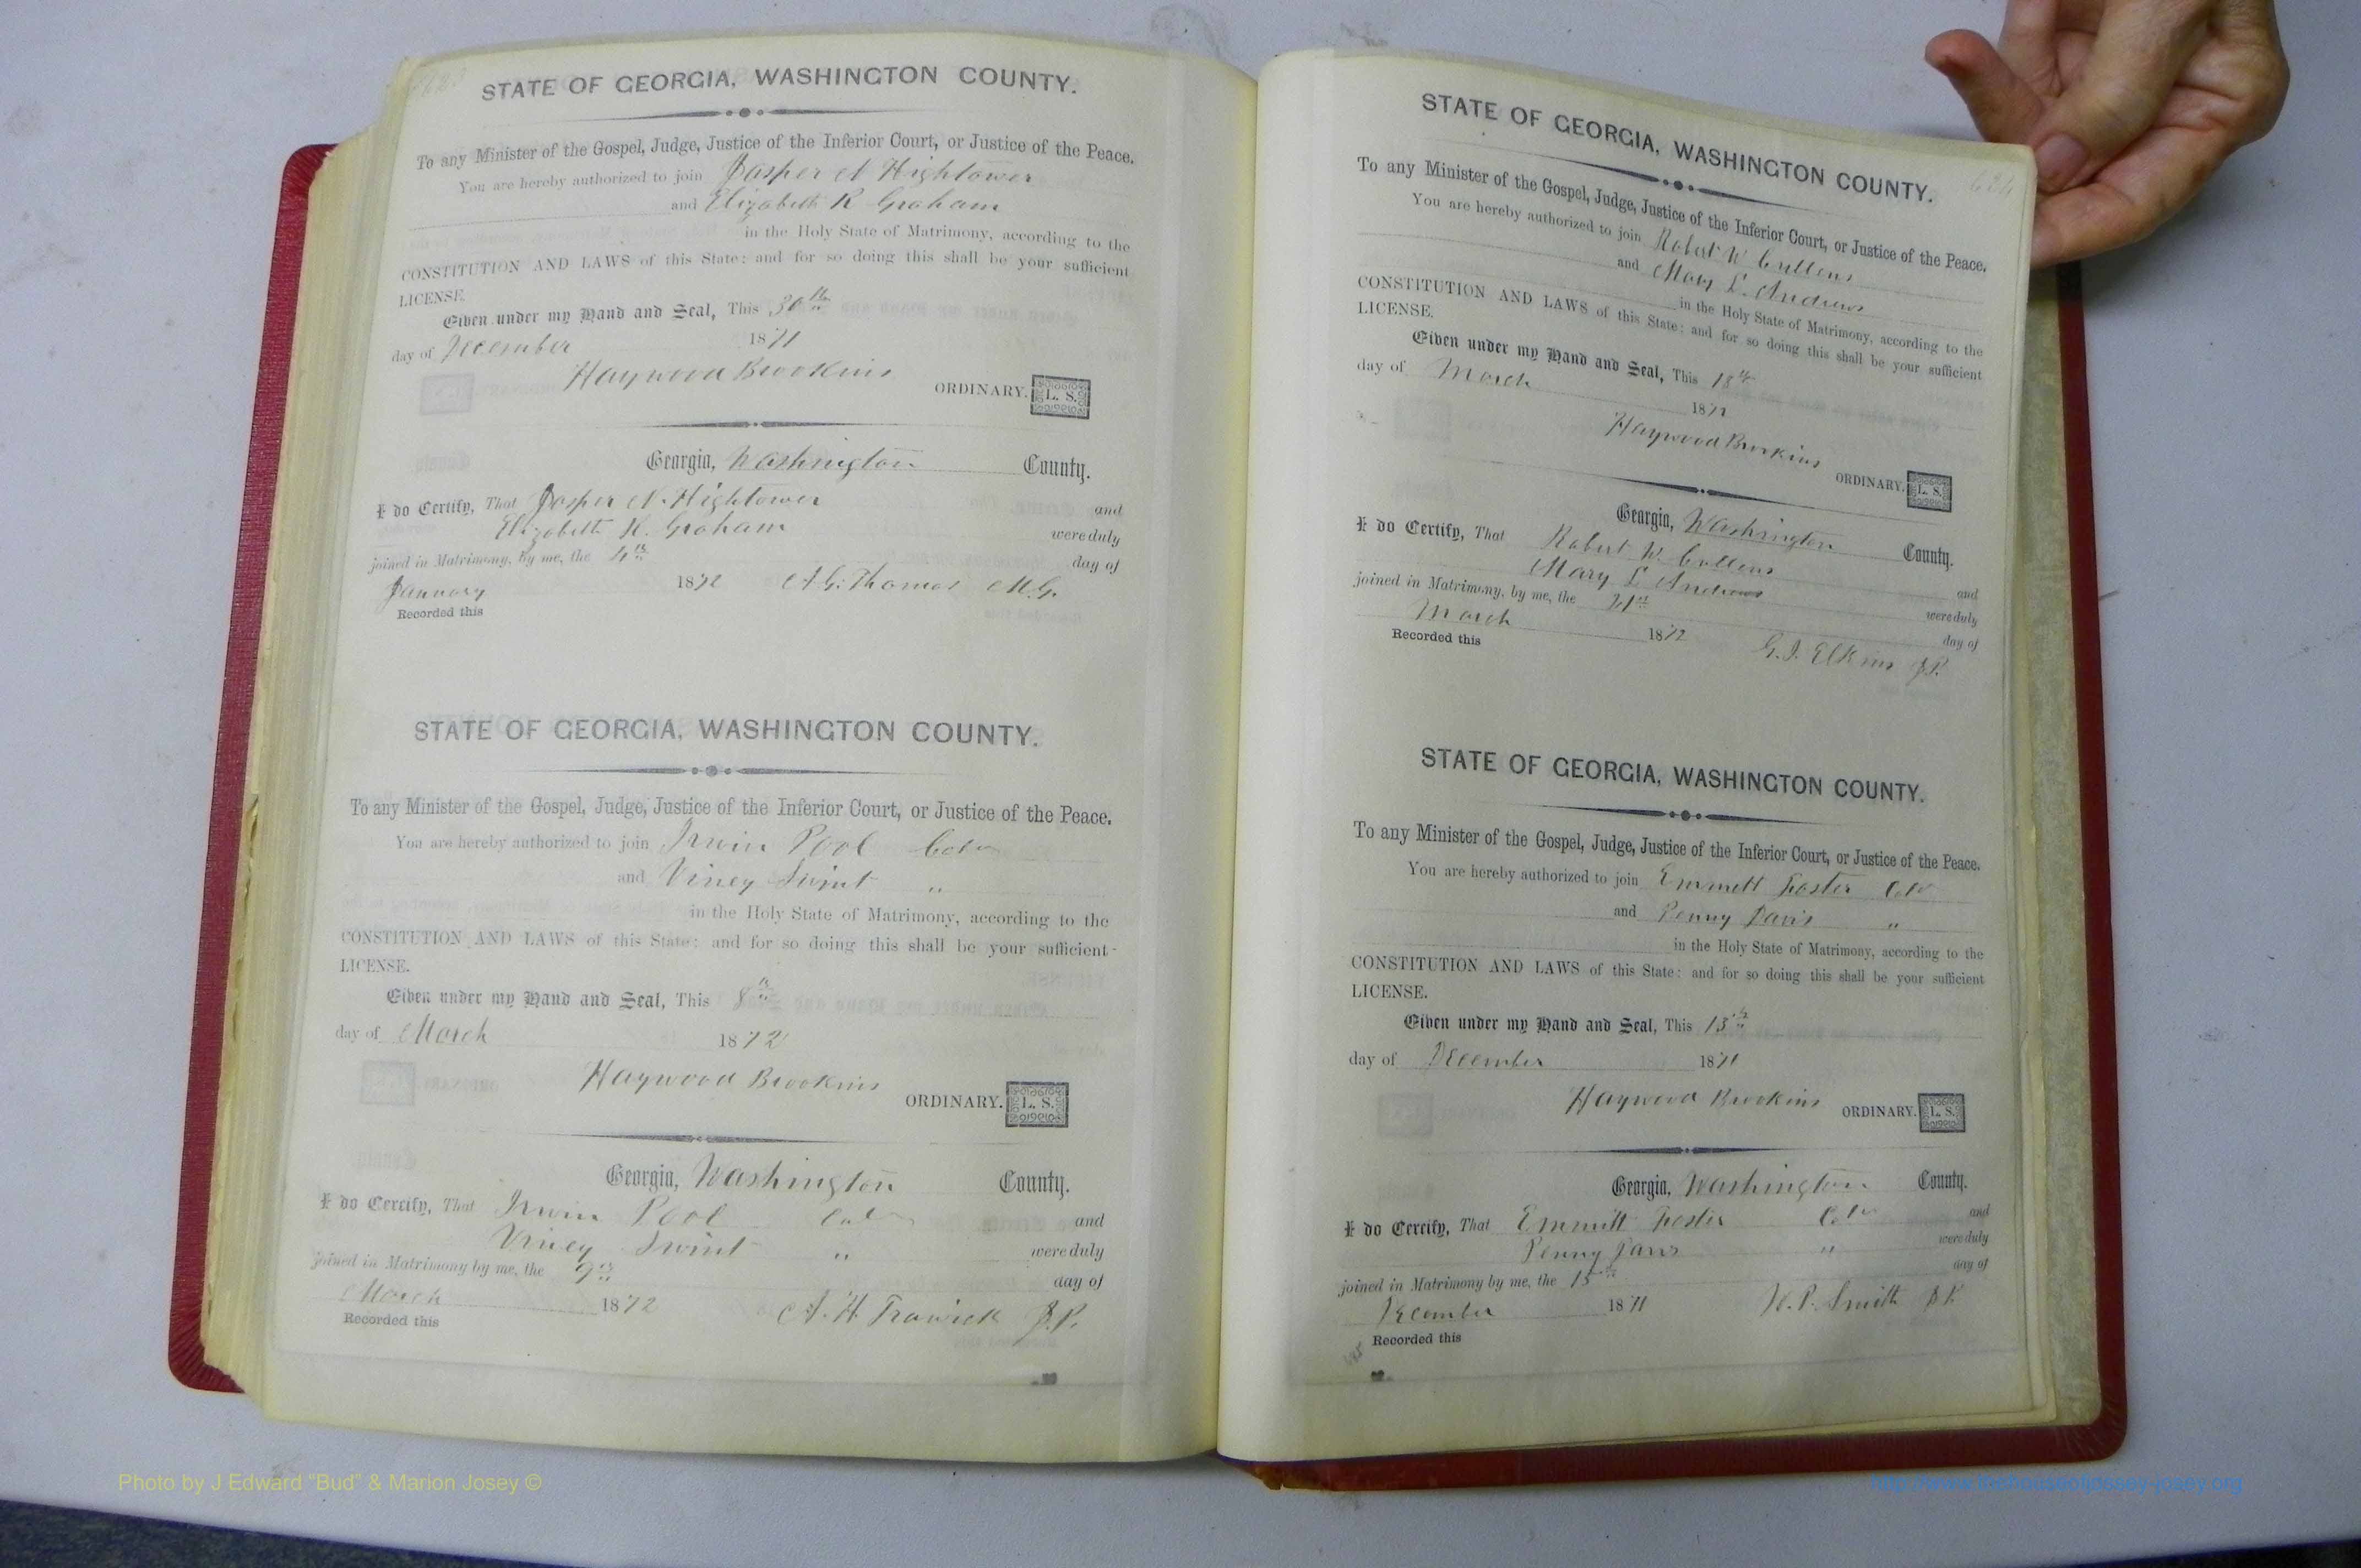 STATE OF GEORGIA, WASHINGTON COUNTY.
To any Minister of the Gospel, Judge, Justice of the Inferior Court, or Justice of the Peace.
You are hereby authorized to join Jasper N Hightower
and Elizabeth R Graham
in the Holy State of Matrimony, according to the
CONSTITUTION AND LAWS of this State: and for so doing this shall be your sufficient
LICENSE.
Given under my Hand and Seal, This 30th
day of December 1871
Haywood Brookins
ORDINARY. L. S.
Georgia, Washington County.
I do Certify, That Jasper N. Hightower and
Elizabeth R. Graham were duly
joined in Matrimony, by me, the 4th day of
January 1872 A.G. Thomas M.G.
Recorded this
STATE OF GEORGIA, WASHINGTON COUNTY.
To any Minister of the Gospel, Judge, Justice of the Inferior Court, or Justice of the Peace.
You are hereby authorized to join Irwin Pool Cold
and Viney Swint "
in the Holy State of Matrimony, according to the
CONSTITUTION AND LAWS of this State: and for so doing this shall be your sufficient
LICENSE.
Given under my Hand and Seal, This 8th
day of March 1872
Haywood Brookins
ORDINARY. L. S.
Georgia, Washington County.
I do Cercify, That Irwin Pool Cold and
Viney Swint " were duly
joined in Matrimony by me, the 9th day of
March 1872 A. H. Trawick J.P.
Recorded this
STATE OF GEORGIA, WASHINGTON COUNTY.
To any Minister of the Gospel, Judge, Justice of the Inferior Court, or Justice of the Peace.
You are hereby authorized to join Robert W Cullens
and Mary L. Andrews
in the Holy State of Matrimony, according to the
CONSTITUTION AND LAWS of this State: and for so doing this shall be your sufficient
LICENSE.
Given under my Hand and Seal, This
day of March
Haywood Brookins
ORDINARY. L. S.
Georgia, Washington County.
I do Certify, That Robert W. Cullens and
Mary L Andrews were duly
joined in Matrimony, by me, the 21st day of
March 1872 G.J. Elkins J.P.
Recorded this
STATE OF GEORGIA, WASHINGTON COUNTY.
To any Minister of the Gospel, Judge, Justice of the Inferior Court, or Justice of the Peace.
You are hereby authorized to join Emmett Foster Cold
and Penny Davis "
in the Holy State of Matrimony, according to the
CONSTITUTION AND LAWS of this State: and for so doing this shall be your sufficient
LICENSE.
Given under my Hand and Seal, This
day of December 1871
Haywood Brookins
ORDINARY. L. S.
Georgia, Washington County.
I do Cercify, That Emmitt Foster Cold and
Penny Davis " were duly
joined in Matrimony by me, the 15th day of
December 1871 W. P. Smith J.P.
Recorded this
Photo by J Edward "Bud" & Marion Josey ©
http://www.thehouseofjossey-josey.org